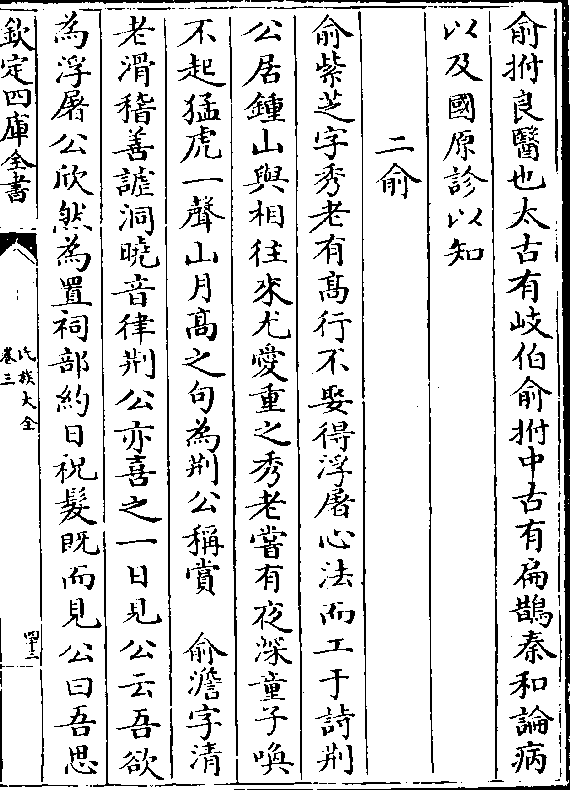 俞拊良醫也太古有岐伯俞拊中古有扁鵲秦和論病
以及國原診以知
二俞
俞紫芝字秀老有髙行不娶得浮屠心法而工于詩荆
公居鍾山與相往來尤愛重之秀老嘗有夜深童子喚
不起猛虎一聲山月髙之句為荆公稱賞　俞澹字清
老滑稽善謔洞曉音律荆公亦喜之一日見公云吾欲
為浮屠公欣然為置祠部約日祝髮既而見公曰吾思
欽定四庫全書
氏族大全
卷三
四十三